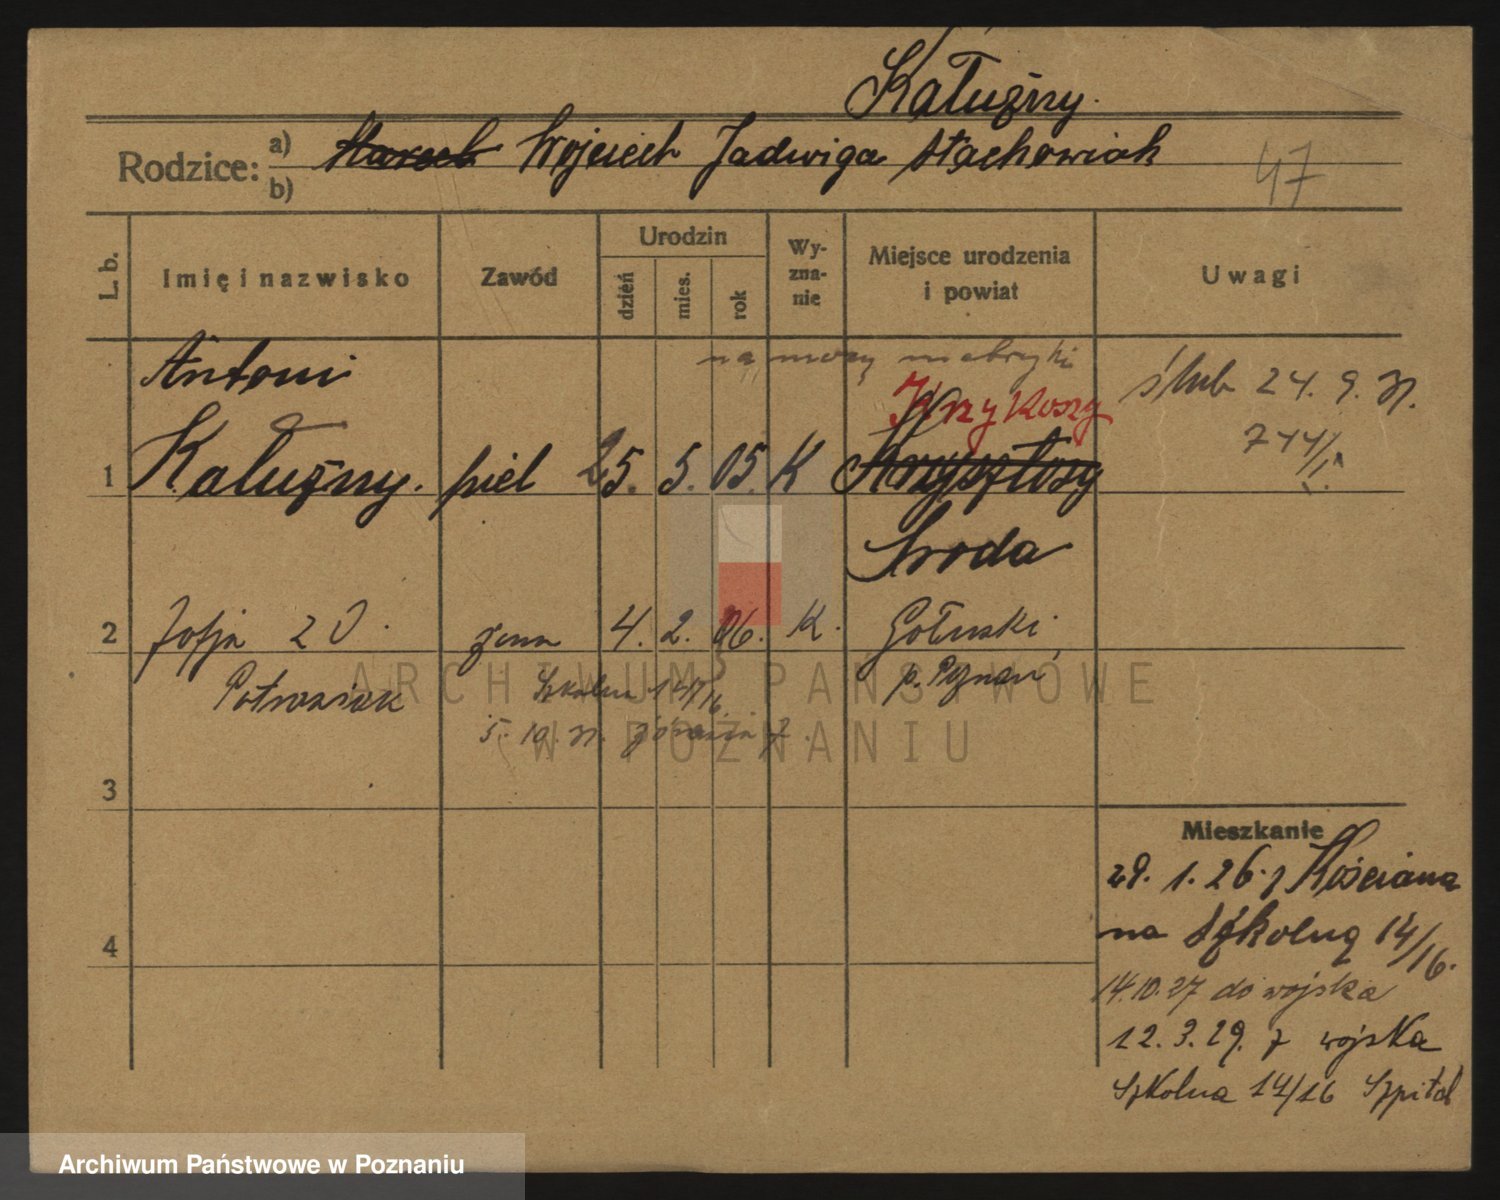 Kałużny.
Rodzice: a) Wojciech Jadwiga Stachowiak
b)
47
L. b.
Imię i nazwisko
Zawód
Urodzin
dzień
mies.
rok
Wy-
zna-
nie
Miejsce urodzenia
i powiat
Uwagi
na mocy metryki
Antoni
Krzykosy
ślub 24. 9. 31.
1 Kałużny. piel 25. 5. 05. K Krzysztosy
Środa
2 Zofja z D. żona 4. 2. 06. K. Gołuski
Potrawiak Szkolna 14/16 p. Poznań
5. 10. 31. Żórawia 7.
ARCHIWUM PAŃSTWOWE
W POZNANIU
3
4
Mieszkanie
29. 1. 26. z Kościana
na Szkolną 14/16.
14.10.27 do wojska
12. 3. 29. z wojska
Szkolna 14/16 Szpital
Archiwum Państwowe w Poznaniu